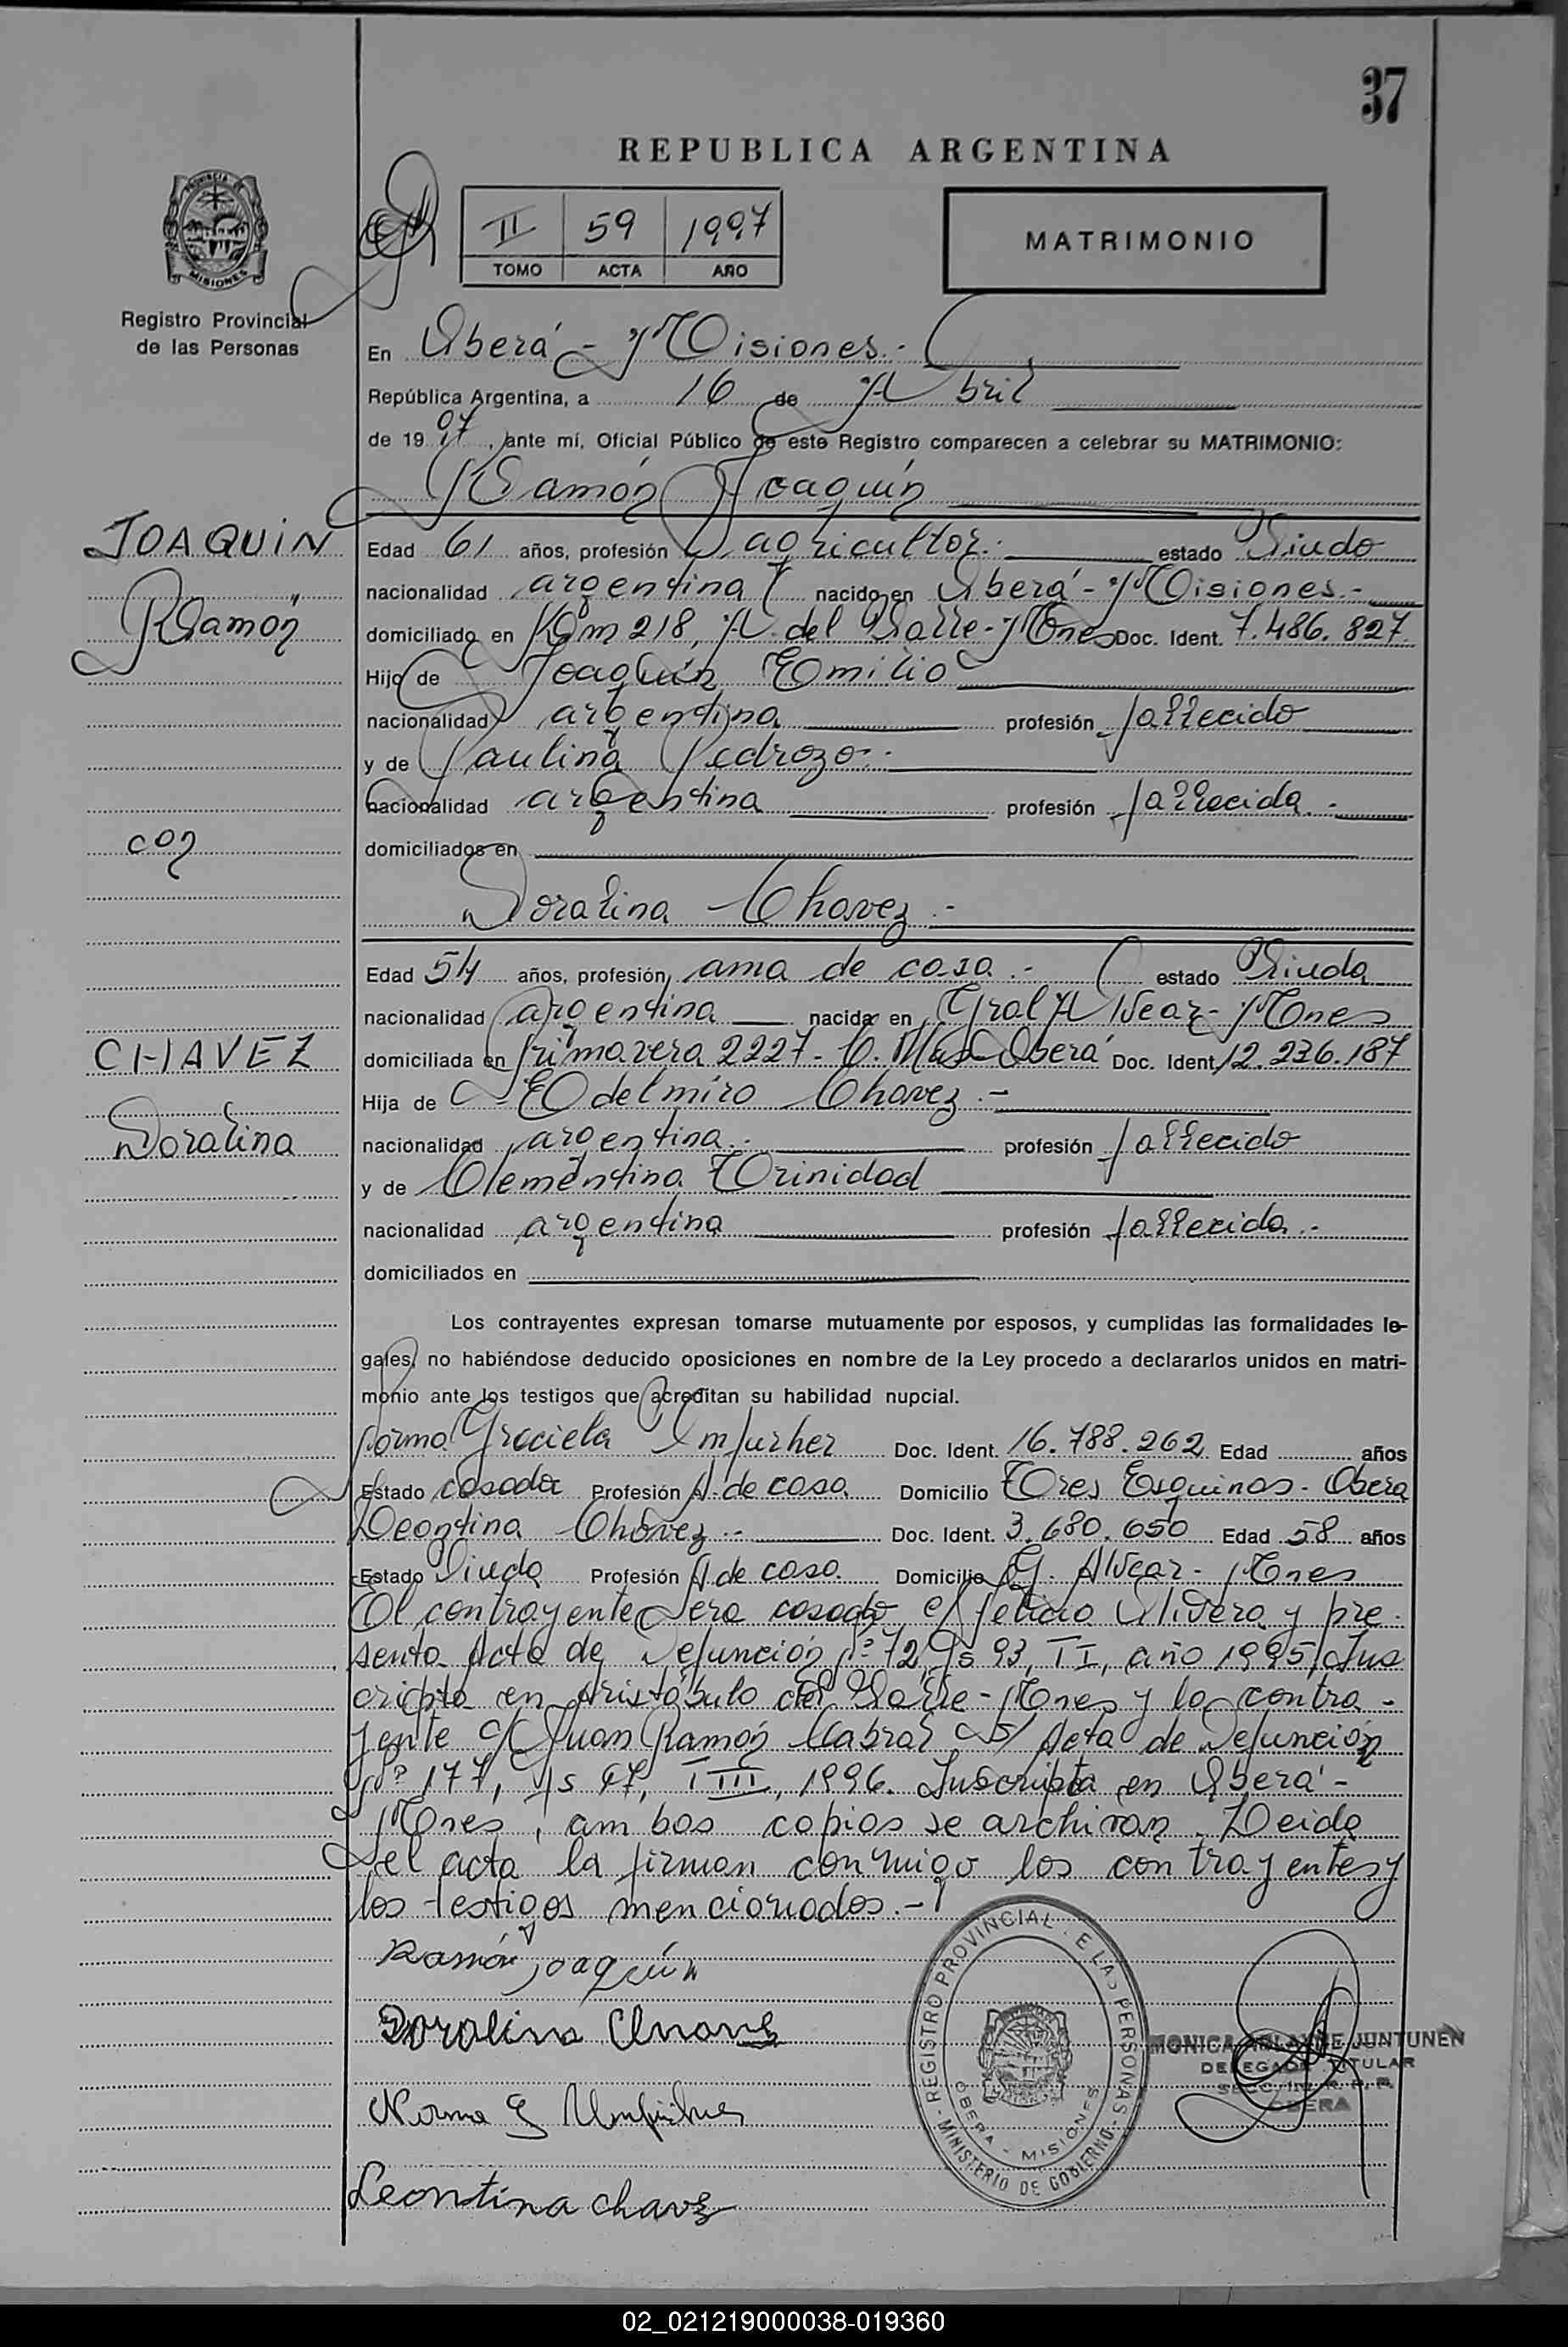 37
REPUBLICA ARGENTINA
PROVINCIA DE
MISIONES
II 59 1997
TOMO ACTA AÑO
MATRIMONIO
Registro Provincial
de las Personas
En Oberá - Misiones.-
República Argentina, a 16 de Abril
de 1997, ante mí, Oficial Público de este Registro comparecen a celebrar su MATRIMONIO:
Ramón Joaquín
JOAQUIN
Ramón
Edad 61 años, profesión agricultor.- estado Viudo
nacionalidad argentina nacido en Oberá - Misiones.-
domiciliado en Km 218, A. del Valle - Mnes Doc. Ident. 7.486.827
Hijo de Joaquín Emilio
nacionalidad argentina profesión fallecido
y de Paulina Pedrozo.-
nacionalidad argentina profesión fallecida.-
con
domiciliados en
Doralina Chavez.-
Edad 54 años, profesión ama de casa.- estado Viuda
nacionalidad argentina nacida en Gral Alvear - Mnes
CHAVEZ
Doralina
domiciliada en Primavera 2227 - Oberá Doc. Ident. 12.236.187
Hija de Edelmiro Chavez.-
nacionalidad argentina.- profesión fallecido
y de Clementina Trinidad
nacionalidad argentina profesión fallecida.-
domiciliados en
Los contrayentes expresan tomarse mutuamente por esposos, y cumplidas las formalidades le-
gales, no habiéndose deducido oposiciones en nombre de la Ley procedo a declararlos unidos en matri-
monio ante los testigos que acreditan su habilidad nupcial.
Norma Graciela Umfurher Doc. Ident. 16.788.262 Edad años
Estado casada Profesión A. de casa Domicilio Tres Esquinas - Oberá
Leontina Chávez.- Doc. Ident. 3.680.650 Edad 58 años
Estado Viuda Profesión A de casa Domicilio G. Alvear - Mnes
El contrayente era casado c/ Olivera y pre-
senta Acta de Defunción nº 72, Fs 93, TI, año 1995, Ins
cripta en Aristóbulo del Valle - Mnes y la contra-
yente c/ Juan Ramón Cabral s/ Acta de Defunción
nº 177, Fs 47, TIII, 1996. Inscripta en Oberá -
Mnes, ambas copias se archivan. Leida
el acta la firman conmigo los contrayentes y
los testigos mencionados.-
Ramón Joaquín
Doralina Chavez
Norma G Umfurher
Leontina Chavez
REGISTRO PROVINCIAL E LAS PERSONAS
OBERA - MISIONES
MINISTERIO DE GOBIERNO
MONICA JUNTUNEN
DELEGADA TITULAR
OBERA
02_021219000038-019360